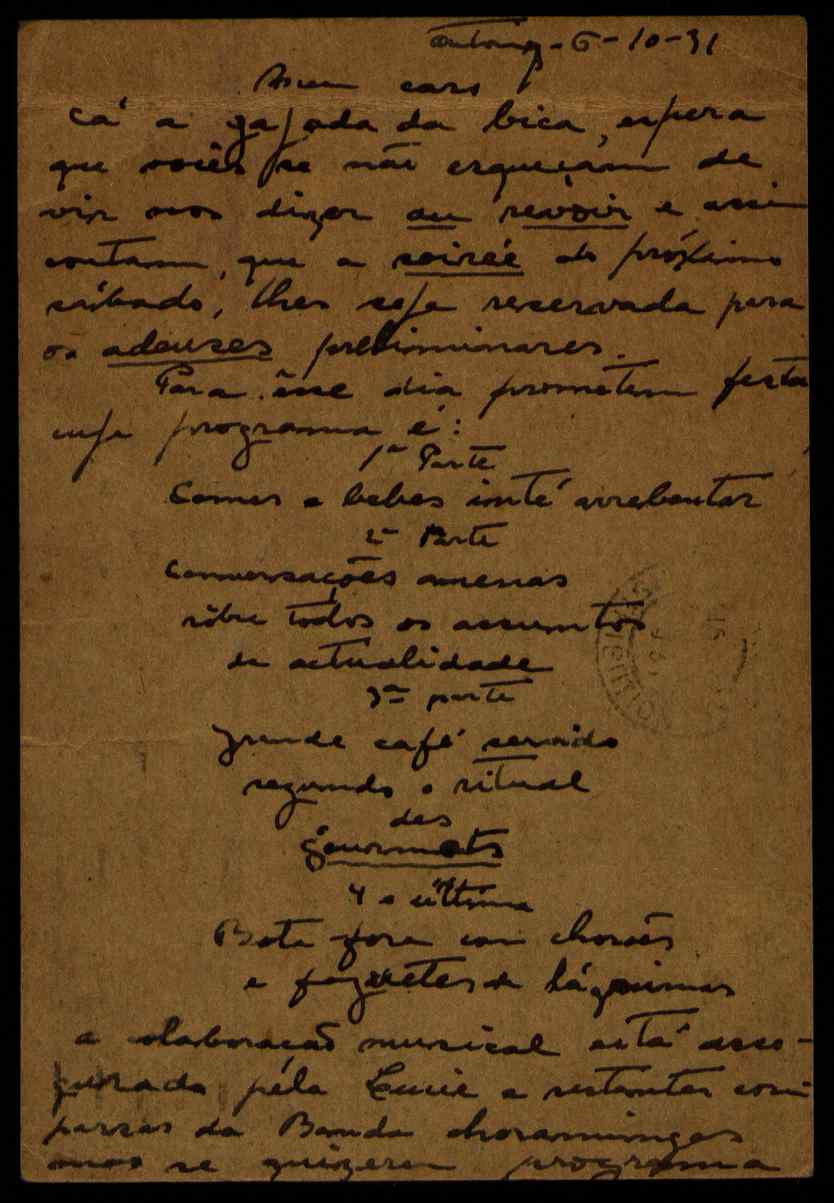 6-10-31
Meu caro
Cá a gajada da bica, espera
que vocês se não esqueçam de
vir nos dizer au revoir e assi
contam, que a soirée do próximo
sábado, lhes seja reservada para
os adeuses preliminares.
Para êsse dia prometem festa
cuja programa é:
1ª Parte
Comes e bebes inté arrebentar
2ª Parte
Conversações amenas
sôbre todos os assuntos
de actualidade
3ª parte
Grande café servido
segundo o ritual
des
gourmets
4 e última
Bota fora com chorões
e foguetes de lágrimas
a colaboração musical está asse-
gurada péla Lucie e restantes com
parsas da Banda choramingas
mas se quizerem programa